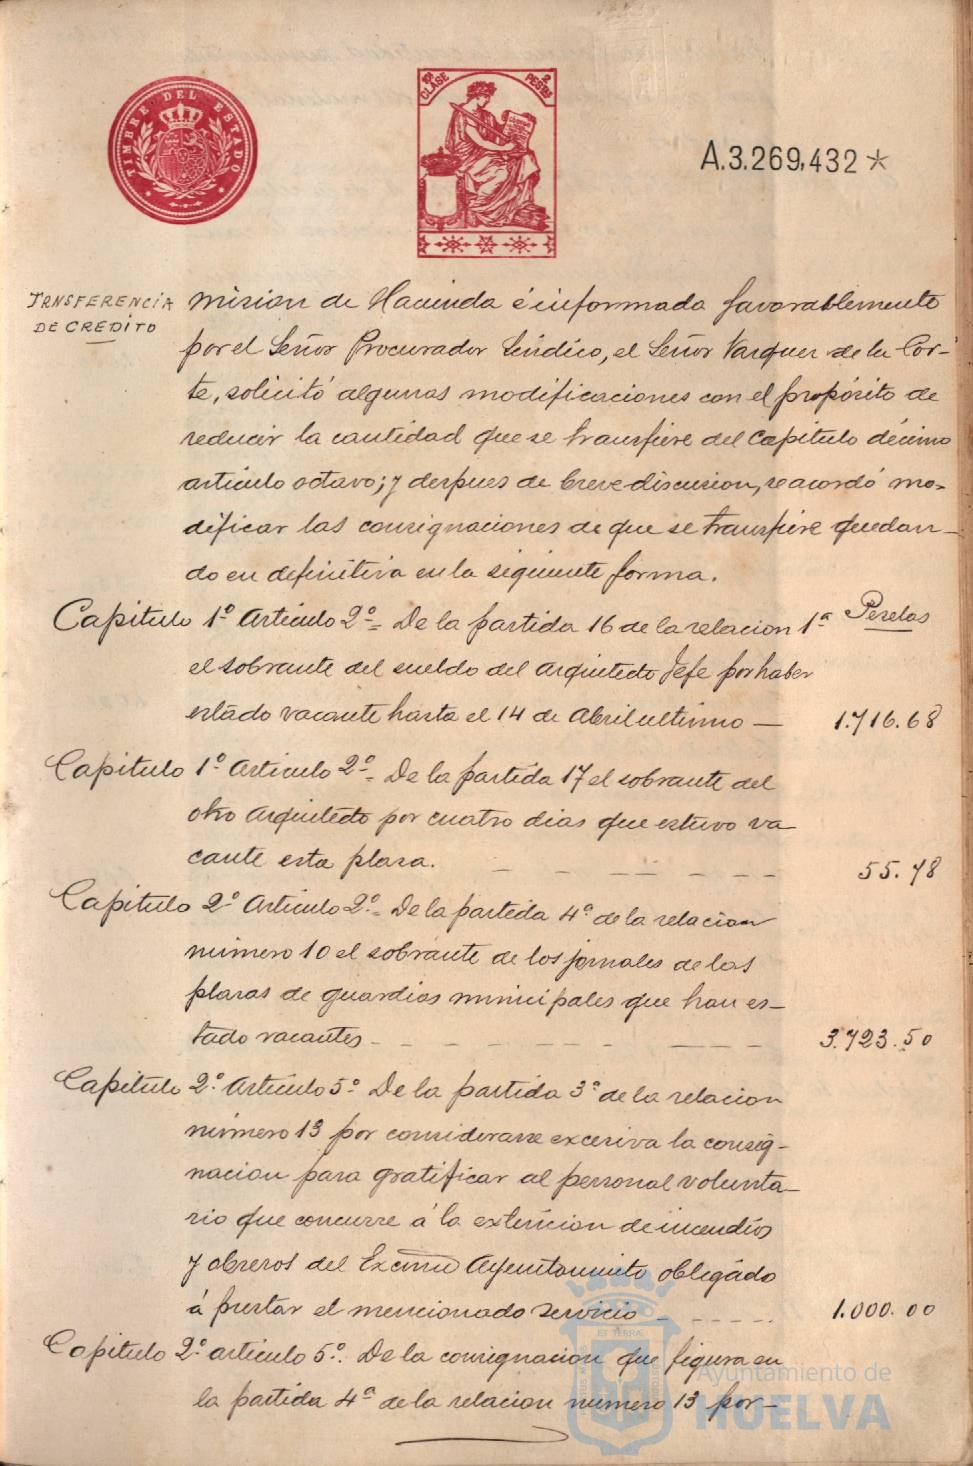 TIMBRE DEL ESTADO
10ª CLASE
2 PESETAS
A.3.269,432 *
TRNSFERENCIA
DE CREDITO
mision de Hacienda é informada favorablemente
por el Señor Procurador Síndico, el Señor Vazquez de la Cor-
te, solicitó algunas modificaciones con el propósito de
reducir la cantidad que se transfiere del capitulo décimo
artículo octavo; y despues de breve discusion, se acordó mo-
dificar las consignaciones de que se transfiere quedan-
do en definitiva en la siguiente forma.
Pesetas
Capitulo 1º Artículo 2º = De la partida 16 de la relacion 1ª
el sobrante del sueldo del Arquitecto Jefe por haber
estado vacante hasta el 14 de Abril ultimo — 1.716.68
Capitulo 1º Artículo 2º = De la partida 17 el sobrante del
otro Arquitecto por cuatro dias que estuvo va-
cante esta plaza. - - - - - - 55.78
Capitulo 2º Artículo 2º = De la partida 4ª de la relacion
número 10 el sobrante de los jornales de las
plazas de guardias municipales que han es-
tado vacantes - - - - - - - 3.723.50
Capitulo 2º Artículo 5º De la partida 3ª de la relacion
número 13 por considerarse excesiva la consig-
nacion para gratificar al personal volunta-
rio que concurre á la extincion de incendios
y obreros del Excmo Ayuntamiento obligado
á prestar el mencionado servicio - - - - - 1.000.00
Capitulo 2º artículo 5º. De la consignacion que figura en
la partida 4ª de la relacion número 13 por-
ET TERRA
Ayuntamiento de
HUELVA